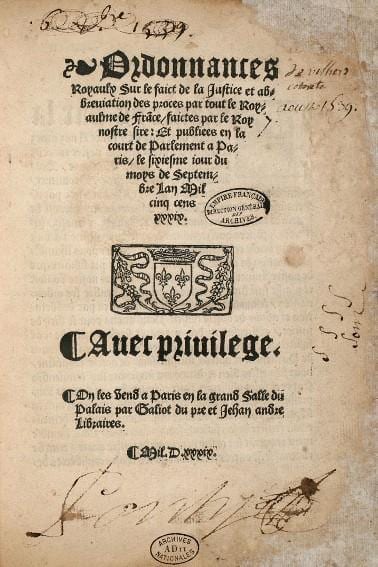 1539.
Ordonnances
Royaulx Sur le faict de la Justice et ab-
breviation des proces par tout le Roy-
aulme de Frāce/faictes par le Roy
nostre sire: Et publiees en la
court de Parlement a Pa-
ris/le sixiesme iour du
moys de Septem-
bre Lan Mil
cinq cens
xxxix.
de villers
aoust 1539.
EMPIRE FRANÇAIS
DIRECTION GÉNÉRALE
DES
ARCHIVES
¶Auec priuilege.
¶On les vend a Paris en la grand Salle du
Palais par Galiot du pre et Jehan andre
Libraires.
¶Mil.D.xxxix.
ARCHIVES
AD II
NATIONALES